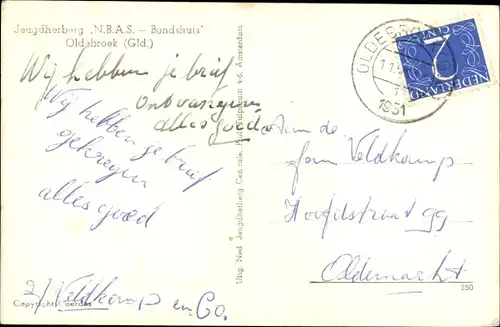 Jeugdherberg „N.B.A.S. – Bondshuis"
Oldebroek (Gld.)
Wij hebben je brief
ontvangen
alles goed
Wij hebben je brief
gekregen
alles goed
Veldkamp en Co.
Copyright Coerdes
Uitg. Ned. Jeugdherberg Centrale, Amsterdam
OLDEBROEK
1951
NEDERLAND
2
CENT
Aan de
fam Veldkamp
Hoofdstraat 99
Oldemarkt
250